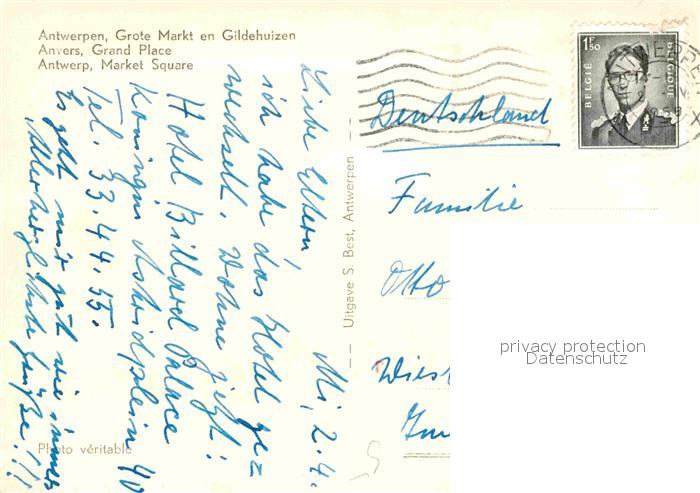 Antwerpen, Grote Markt en Gildehuizen
Anvers, Grand Place
Antwerp, Market Square
Mi, 2.4.
Liebe Eltern,
ich habe das Hotel ge=
wechselt. Wohne jetzt:
Hotel Billard Palace
Koningin Astridplein 40
Tel. 33.44.55.
Es geht mir gut wie immer
Allerherzlichste Grüße!!!
Photo véritable
Uitgave S. Best, Antwerpen
1F50
BELGIË
BELGIQUE
Deutschland
Familie
Otto
Wiesb
privacy protection
Datenschutz